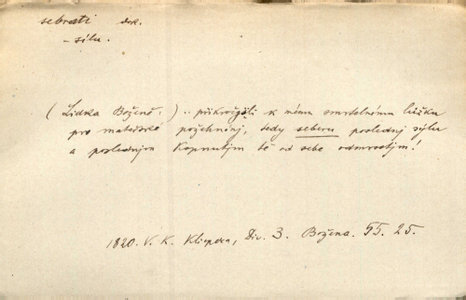 sebrati dok.
- sílu.
( Lidka Boženě: ) .. přikročjšli k mému smrtelnému lůžku
pro mateřské požehnánj, tedy seberu poslednj sýlu
a poslednjm kopnutjm tě od sebe odmrsstjm!
1820. V. K. Klicpera, Div. 3. Božena. 55. 25.